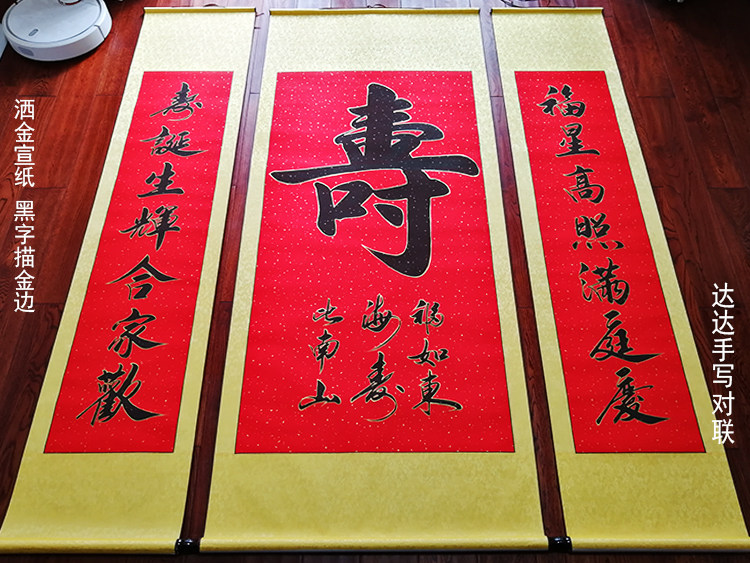 福星高照满庭慶
壽
福如東
海壽
比南山
寿誕生輝合家歡
洒金宣纸 黑字描金边
达达手写对联